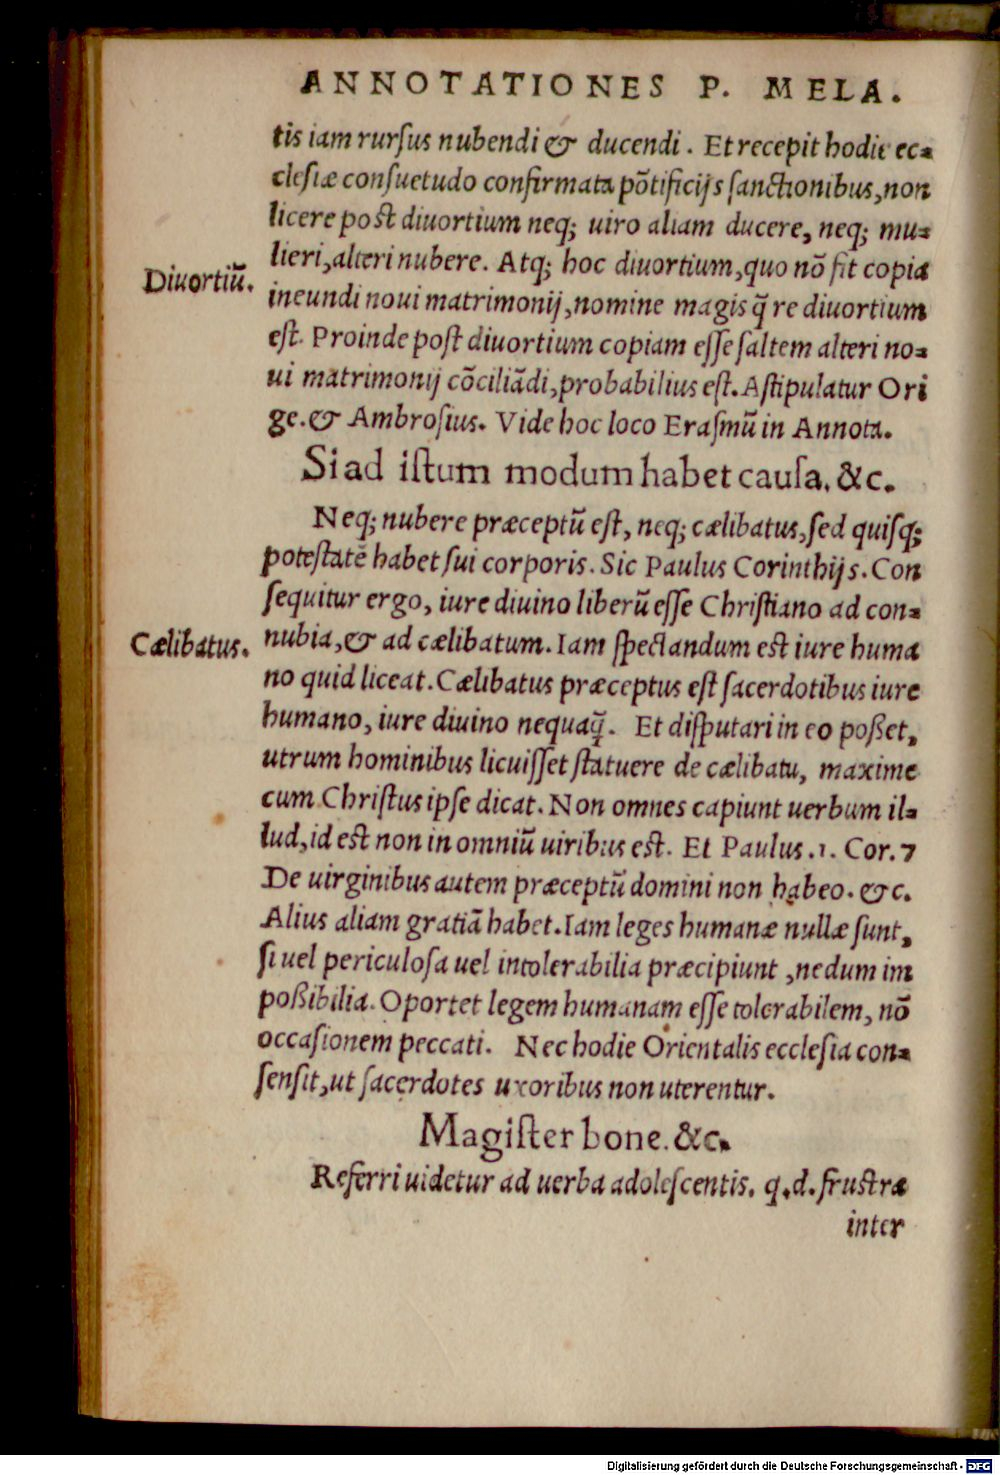 ANNOTATIONES P. MELA.
tis iam rurſus nubendi & ducendi. Et recepit hodie ec⸗
cleſiæ conſuetudo confirmata põtificijs ſanctionibus, non
licere post diuortium neq; uiro aliam ducere, neq; mu⸗
lieri, alteri nubere. Atq; hoc diuortium, quo nõ fit copia
Diuortiũ.
ineundi noui matrimonij, nomine magis q̃ re diuortium
eſt. Proinde poſt diuortium copiam eſſe ſaltem alteri no⸗
ui matrimonij cõciliãdi, probabilius eſt. Aſtipulatur Ori
ge. & Ambroſius. Vide hoc loco Eraſmũ in Annota.
Si ad iſtum modum habet cauſa. &c.
Neq; nubere præceptũ eſt, neq; cælibatus, ſed quiſq;
poteſtatẽ habet ſui corporis. Sic Paulus Corinthijs. Con
ſequitur ergo, iure diuino liberũ eſſe Chriſtiano ad con⸗
Cælibatus.
nubia, & ad cælibatum. Iam ſpectandum est iure huma
no quid liceat. Cælibatus præceptus eſt ſacerdotibus iure
humano, iure diuino nequaq̃. Et diſputari in eo poßet,
utrum hominibus licuiſſet ſtatuere de cælibatu, maxime
cum Chriſtus ipſe dicat. Non omnes capiunt uerbum il⸗
lud, id est non in omniũ uiribus est. Et Paulus .1. Cor. 7
De uirginibus autem præceptũ domini non habeo. &c.
Alius aliam gratiã habet. Iam leges humanæ nullæ ſunt,
ſi uel periculoſa uel intolerabilia præcipiunt, nedum im
poßibilia. Oportet legem humanam eſſe tolerabilem, nõ
occaſionem peccati. Nec hodie Orientalis eccleſia con⸗
ſenſit, ut ſacerdotes uxoribus non uterentur.
Magiſter bone. &c.
Referri uidetur ad uerba adoleſcentis. q.d. fruſtra
inter
Digitalisierung gefördert durch die Deutsche Forschungsgemeinschaft - DFG